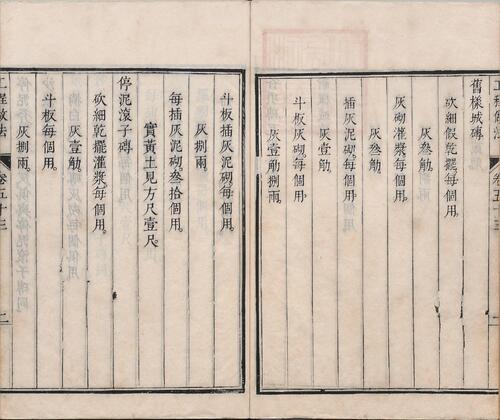 舊樣城磚
砍細假乾擺每個用
灰叁觔
灰砌灌漿每個用
灰叁觔
插灰泥砌每個用
灰壹觔
斗板灰砌每個用
灰壹觔捌兩
斗板插灰泥砌每個用
灰捌兩
每插灰泥砌叁拾個用
實黃土見方尺壹尺
停泥滾子磚
砍細乾擺灌漿每個用
灰壹觔
斗板每個用
灰捌兩
工程做法
卷五十三